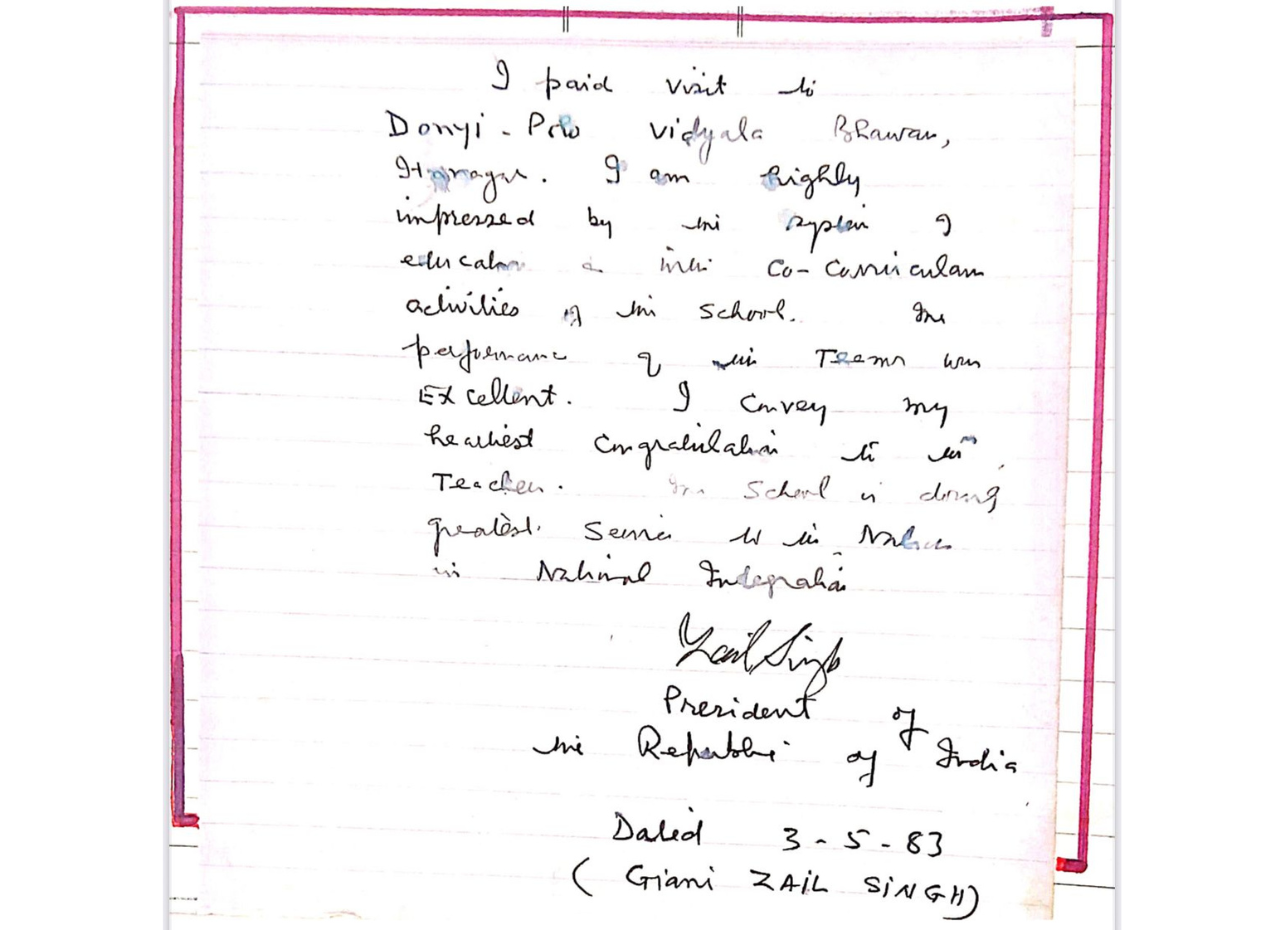 I paid visit to
Donyi-Polo Vidyala Bhawan,
Itanagar. I am highly
impressed by the system of
education & its co-curricular
activities of the school. The
performance of the Teams was
Excellent. I convey my
heartiest congratulation to the
Teacher. The School is doing
greatest service to the Nation
in National Integration
Zail Singh
President of
the Republic of India
Dated 3-5-83
(Giani ZAIL SINGH)